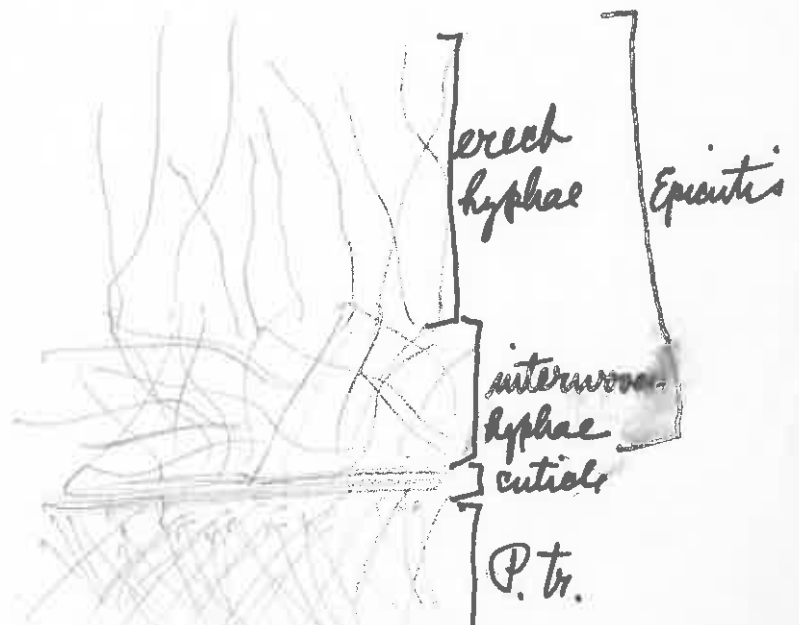 erect
hyphae
Epicutis
interwoven
hyphae
cuticle
P. tr.